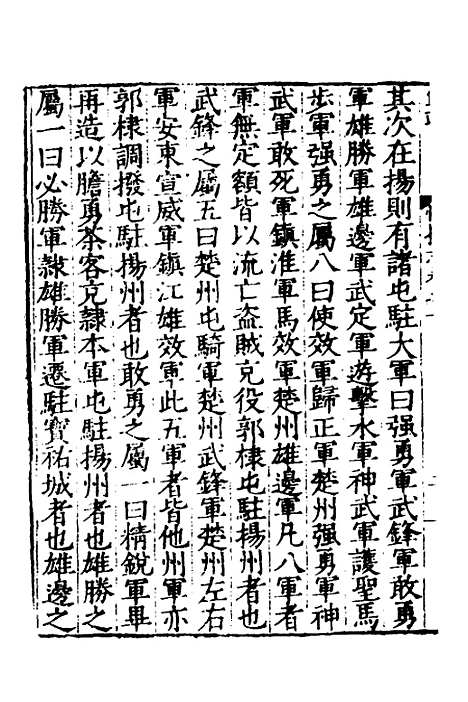 其次在揚則有諸屯駐大軍曰强勇軍武鋒軍敢勇
軍雄勝軍雄邊軍武定軍遊擊水軍神武軍護聖馬
步軍强勇之屬八曰使效軍歸正軍楚州强勇軍神
武軍敢死軍鎮淮軍馬效軍楚州雄邊軍凡八軍者
軍無定額皆以流亡盗賊充役郭棣屯駐揚州者也
武鋒之屬五曰楚州屯騎軍楚州武鋒軍楚州左右
軍安東宣威軍鎮江雄效軍此五軍者皆他州軍亦
郭棣調撥屯駐揚州者也敢勇之屬一曰精銳軍畢
再造以膽勇茶客充隸本軍屯駐揚州者也雄勝之
屬一曰必勝軍隸雄勝軍遷駐寳祐城者也雄邊之